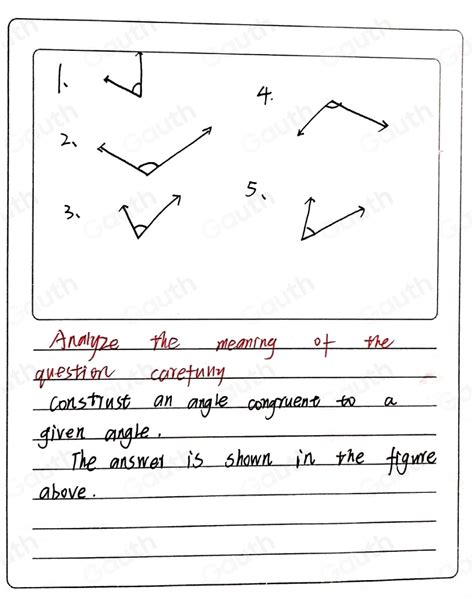 1.
2、
3、
4.
5、
Analyze the meaning of the
question carefully
Construst an angle congruent to a
given angle.
The answer is shown in the figure
above.
Gauth